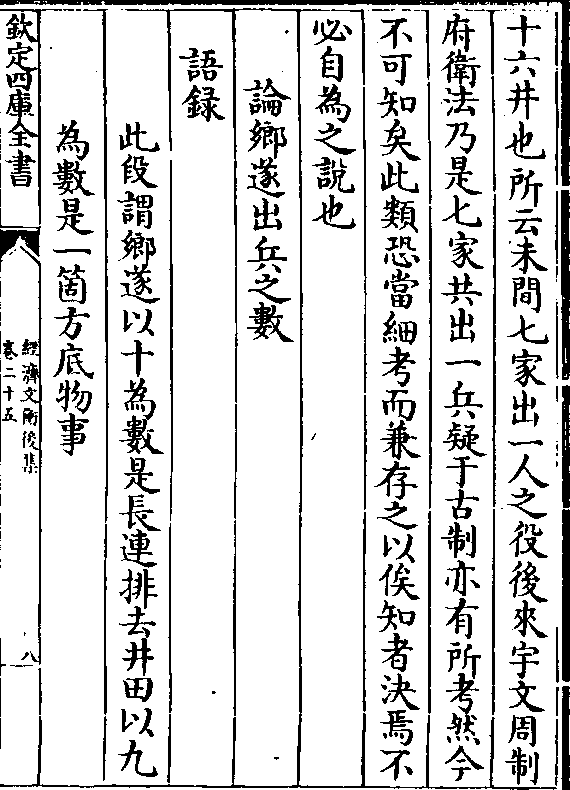 十六井也所云未間七家出一人之役後來宇文周制
府衛法乃是七家共出一兵疑于古制亦有所考然今
不可知矣此類恐當細考而兼存之以俟知者決焉不
必自為之說也
論鄉遂出兵之數
語録
此段謂鄉遂以十為數是長連排去井田以九
為數是一箇方底物事
欽定四庫全書
經濟文衡後集
卷二十五
八